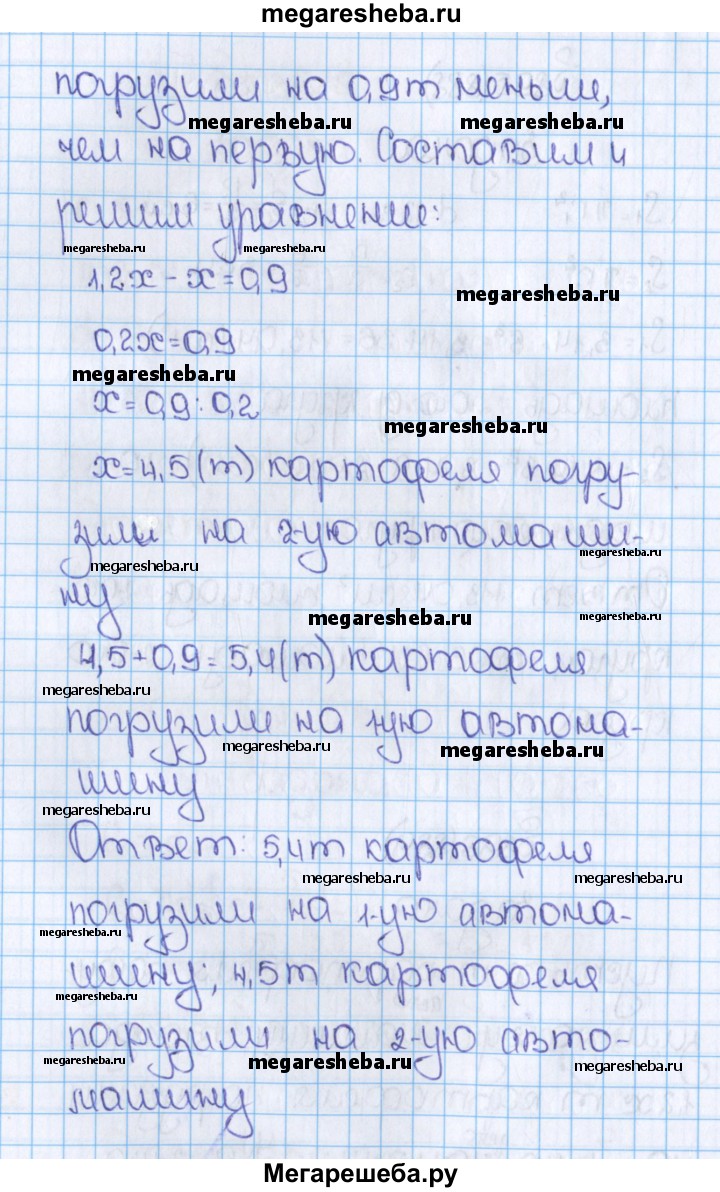 megaresheba.ru
погрузили на 0,9 т меньше,
megaresheba.ru megaresheba.ru
чем на первую. Составим и
решим уравнение:
megaresheba.ru megaresheba.ru
1,2x - x = 0,9
megaresheba.ru
0,2x = 0,9
megaresheba.ru
x = 0,9 : 0,2
megaresheba.ru
x = 4,5 (т) картофеля погру-
зили на 2-ую автомаши-
megaresheba.ru
megaresheba.ru
ну
megaresheba.ru megaresheba.ru
4,5 + 0,9 = 5,4 (т) картофеля
megaresheba.ru
погрузили на 1-ую автома-
megaresheba.ru megaresheba.ru
шину
megaresheba.ru megaresheba.ru
Ответ: 5,4 т картофеля
megaresheba.ru megaresheba.ru
погрузили на 1-ую автома-
megaresheba.ru
шину; 4,5 т картофеля
megaresheba.ru
погрузили на 2-ую авто-
megaresheba.ru megaresheba.ru megaresheba.ru
машину
Мегарешеба.ру